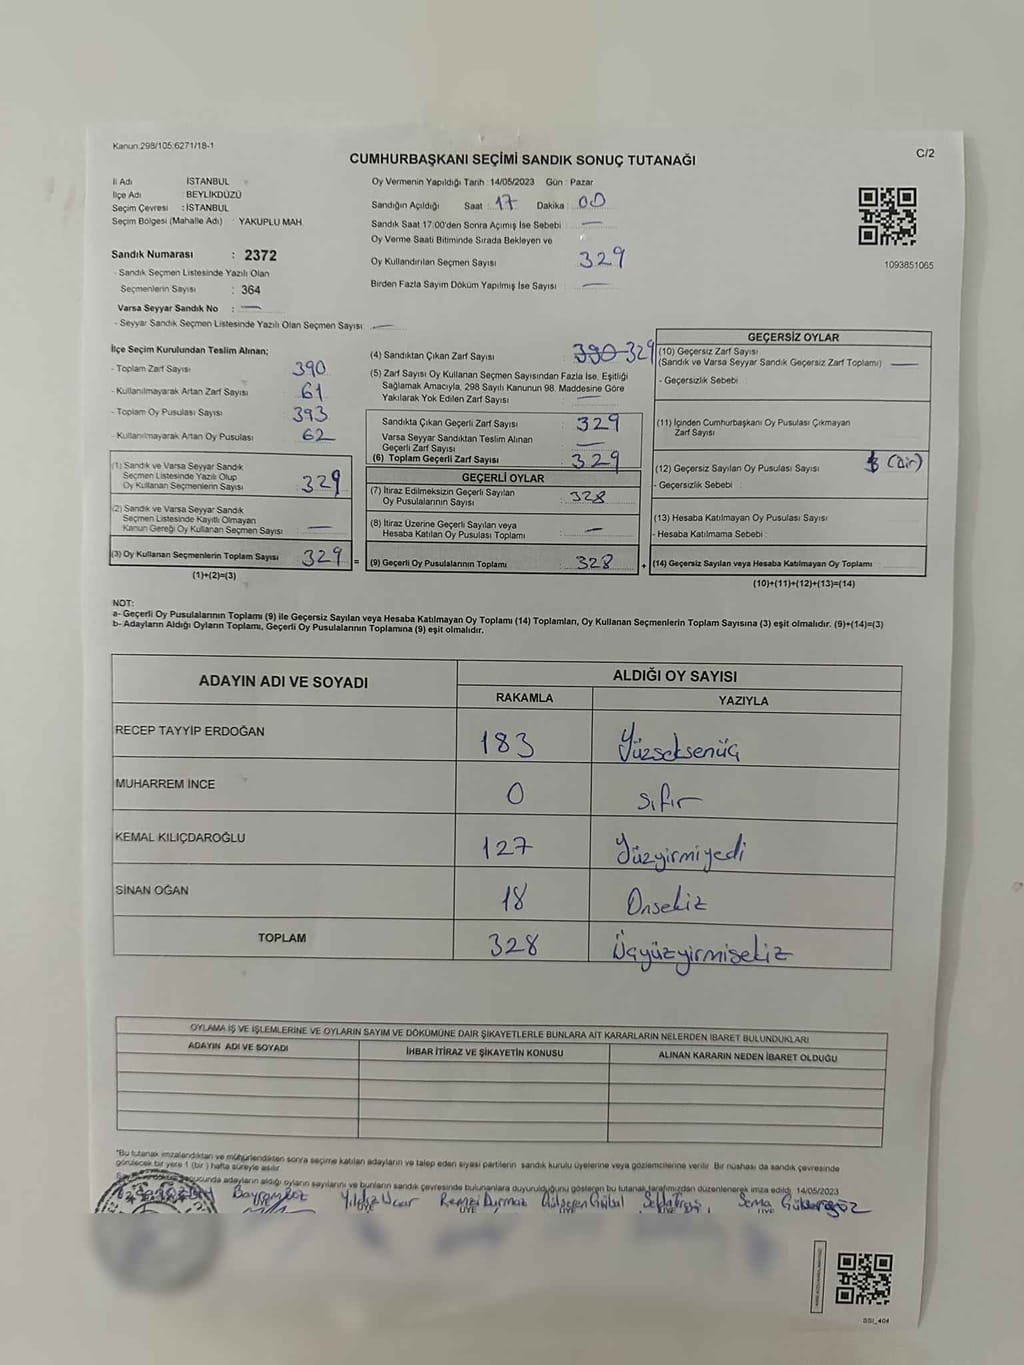 Kanun:298/105;6271/18-1
C/2
CUMHURBAŞKANI SEÇİMİ SANDIK SONUÇ TUTANAĞI
İl Adı İSTANBUL
İlçe Adı BEYLİKDÜZÜ
Seçim Çevresi : İSTANBUL
Seçim Bölgesi (Mahalle Adı) : YAKUPLU MAH.
Sandık Numarası : 2372
- Sandık Seçmen Listesinde Yazılı Olan
Seçmenlerin Sayısı : 364
Varsa Seyyar Sandık No : —
- Seyyar Sandık Seçmen Listesinde Yazılı Olan Seçmen Sayısı : —
Oy Vermenin Yapıldığı Tarih : 14/05/2023 Gün : Pazar
Sandığın Açıldığı Saat : 17 Dakika : 00
Sandık Saat 17:00'den Sonra Açılmış İse Sebebi : —
Oy Verme Saati Bitiminde Sırada Bekleyen ve
Oy Kullandırılan Seçmen Sayısı 329
Birden Fazla Sayım Döküm Yapılmış İse Sayısı : —
1093851065
İlçe Seçim Kurulundan Teslim Alınan;
- Toplam Zarf Sayısı : 390
- Kullanılmayarak Artan Zarf Sayısı : 61
- Toplam Oy Pusulası Sayısı : 393
- Kullanılmayarak Artan Oy Pusulası : 62
(1) Sandık ve Varsa Seyyar Sandık
Seçmen Listesinde Yazılı Olup
Oy Kullanan Seçmenlerin Sayısı : 329
(2) Sandık ve Varsa Seyyar Sandık
Seçmen Listesinde Kayıtlı Olmayan
Kanun Gereği Oy Kullanan Seçmen Sayısı : —
(3) Oy Kullanan Seçmenlerin Toplam Sayısı : 329
(1)+(2)=(3)
(4) Sandıktan Çıkan Zarf Sayısı : 390 329
(5) Zarf Sayısı Oy Kullanan Seçmen Sayısından Fazla İse, Eşitliği
Sağlamak Amacıyla, 298 Sayılı Kanunun 98. Maddesine Göre
Yakılarak Yok Edilen Zarf Sayısı : —
Sandıkta Çıkan Geçerli Zarf Sayısı : 329
Varsa Seyyar Sandıktan Teslim Alınan
Geçerli Zarf Sayısı : —
(6) Toplam Geçerli Zarf Sayısı : 329
GEÇERLİ OYLAR
(7) İtiraz Edilmeksizin Geçerli Sayılan
Oy Pusulalarının Sayısı : 328
(8) İtiraz Üzerine Geçerli Sayılan veya
Hesaba Katılan Oy Pusulası Toplamı : —
= (9) Geçerli Oy Pusulalarının Toplamı : 328 +
GEÇERSİZ OYLAR
(10) Geçersiz Zarf Sayısı
(Sandık ve Varsa Seyyar Sandık Geçersiz Zarf Toplamı) : —
- Geçersizlik Sebebi :
(11) İçinden Cumhurbaşkanı Oy Pusulası Çıkmayan
Zarf Sayısı
(12) Geçersiz Sayılan Oy Pusulası Sayısı : (bir)
- Geçersizlik Sebebi :
(13) Hesaba Katılmayan Oy Pusulası Sayısı
- Hesaba Katılmama Sebebi :
(14) Geçersiz Sayılan veya Hesaba Katılmayan Oy Toplamı
(10)+(11)+(12)+(13)=(14)
NOT:
a- Geçerli Oy Pusulalarının Toplamı (9) ile Geçersiz Sayılan veya Hesaba Katılmayan Oy Toplamı (14) Toplamları, Oy Kullanan Seçmenlerin Toplam Sayısına (3) eşit olmalıdır. (9)+(14)=(3)
b- Adayların Aldığı Oyların Toplamı, Geçerli Oy Pusulalarının Toplamına (9) eşit olmalıdır.
ADAYIN ADI VE SOYADI
ALDIĞI OY SAYISI
RAKAMLA YAZIYLA
RECEP TAYYİP ERDOĞAN 183 Yüzseksenüç
MUHARREM İNCE 0 sıfır
KEMAL KILIÇDAROĞLU 127 Yüzyirmiyedi
SİNAN OĞAN 18 Onsekiz
TOPLAM 328 Üçyüzyirmisekiz
OYLAMA İŞ VE İŞLEMLERİNE VE OYLARIN SAYIM VE DÖKÜMÜNE DAİR ŞİKAYETLERLE BUNLARA AİT KARARLARIN NELERDEN İBARET BULUNDUKLARI
ADAYIN ADI VE SOYADI İHBAR İTİRAZ VE ŞİKAYETİN KONUSU ALINAN KARARIN NEDEN İBARET OLDUĞU
*Bu tutanak imzalandıktan ve mühürlendikten sonra seçime katılan adayların ve talep eden siyasi partilerin sandık kurulu üyelerine veya gözlemcilerine verilir. Bir nüshası da sandık çevresinde
görülecek bir yere 1 (bir) hafta süreyle asılır.
sonucunda adayların aldığı oyların sayılarını ve bunların sandık çevresinde bulunanlara duyurulduğunu gösteren bu tutanak tarafımızdan düzenlenerek imza edildi. 14/05/2023
Yıldız Ucar Remzi Durmaz Gülseren Gülbul Sema
ÜYE ÜYE ÜYE ÜYE
SSI_404